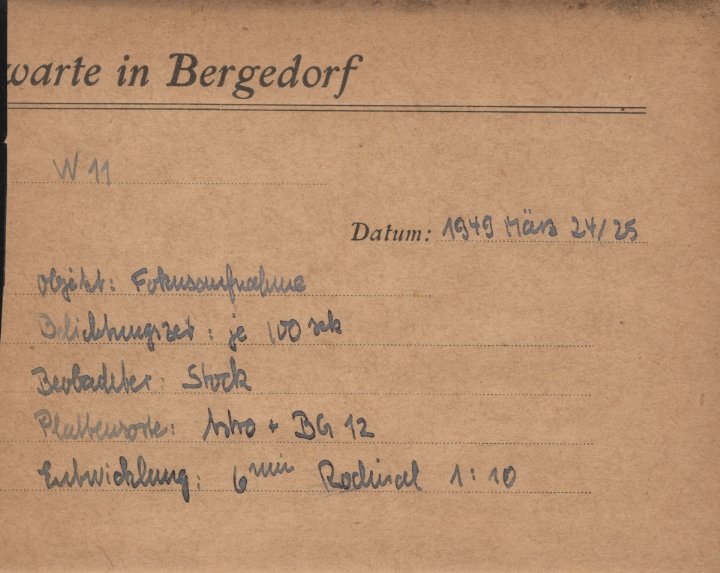 warte in Bergedorf
W 11
Datum: 1949 März 24/25
Objekt: Fokusaufnahme
Belichtungszeit: je 100 sek
Beobachter: Stock
Plattensorte: Astro + BG 12
Entwicklung: 6 min Rodinal 1:10